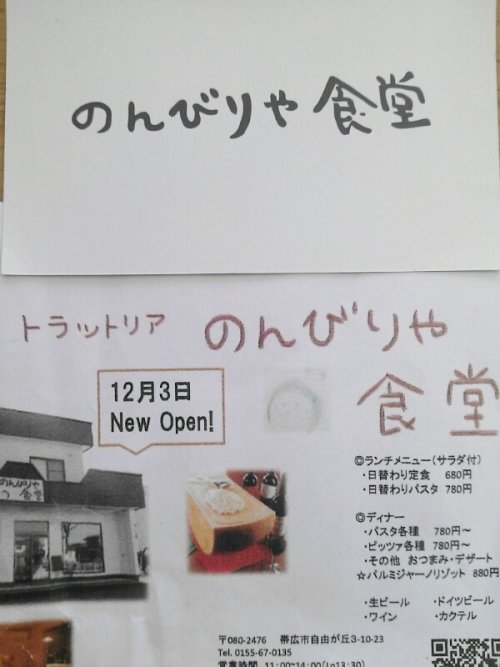 のんびりや 食堂
トラットリア のんびりや
食堂
12月3日
New Open!
のんびりや
食堂
◎ランチメニュー(サラダ付)
・日替わり定食 680円
・日替わりパスタ 780円
◎ディナー
・パスタ各種 780円~
・ピッツァ各種 780円~
・その他 おつまみ・デザート
☆パルミジャーノリゾット 880円
・生ビール ・ドイツビール
・ワイン ・カクテル
〒080-2476 帯広市自由が丘3-10-23
Tel. 0155-67-0135
営業時間 11:00~14:00(Lo13:30)